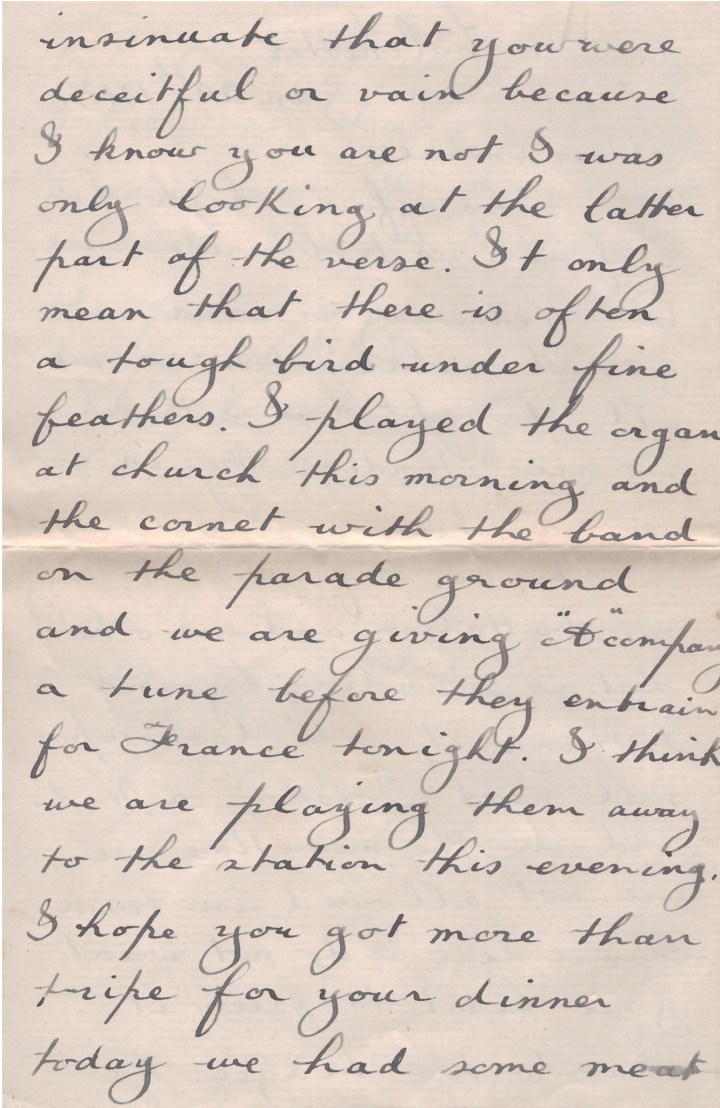 insinuate that you were
deceitful or vain because
I know you are not I was
only looking at the latter
part of the verse. It only
mean that there is often
a tough bird under fine
feathers. I played the organ
at church this morning and
the cornet with the band
on the parade ground
and we are giving "A" company
a tune before they entrain
for France tonight. I think
we are playing them away
to the station this evening.
I hope you got more than
tripe for your dinner
today we had some meat